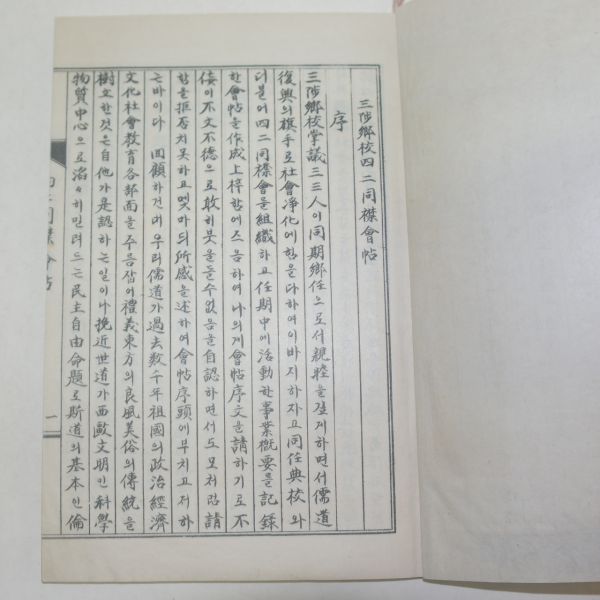 三陟鄕校四二同襟會帖
序
三陟鄕校掌議三三人이同期鄕任으로서親睦을겸제하면서儒道
復興의旗手로社會淨化에힘을다하여이바지하자고同任典校와
더불어四二同襟會를組織하고任期中에活動한事業槪要를記錄
한會帖을作成上梓함에즈음하여나의게會帖序文을請하기로不
侫이不文不德으로敢히붓을들수없음을自認하면서도모처럼請
함을拒否치못하고몃마듸所感을述하여會帖序頭에부치고저하
는바이다 回顧하건대우리儒道가過去數千年祖國의政治經濟
文化社會敎育各部面을주름잡어禮義東方의良風美俗의傳統을
樹立한것은自他가是認하는일이나挽近世道가西歐文明인科學
物質中心으로滔々히밀려드는民主自由命題로斯道의基本인倫
四二同襟會帖
一